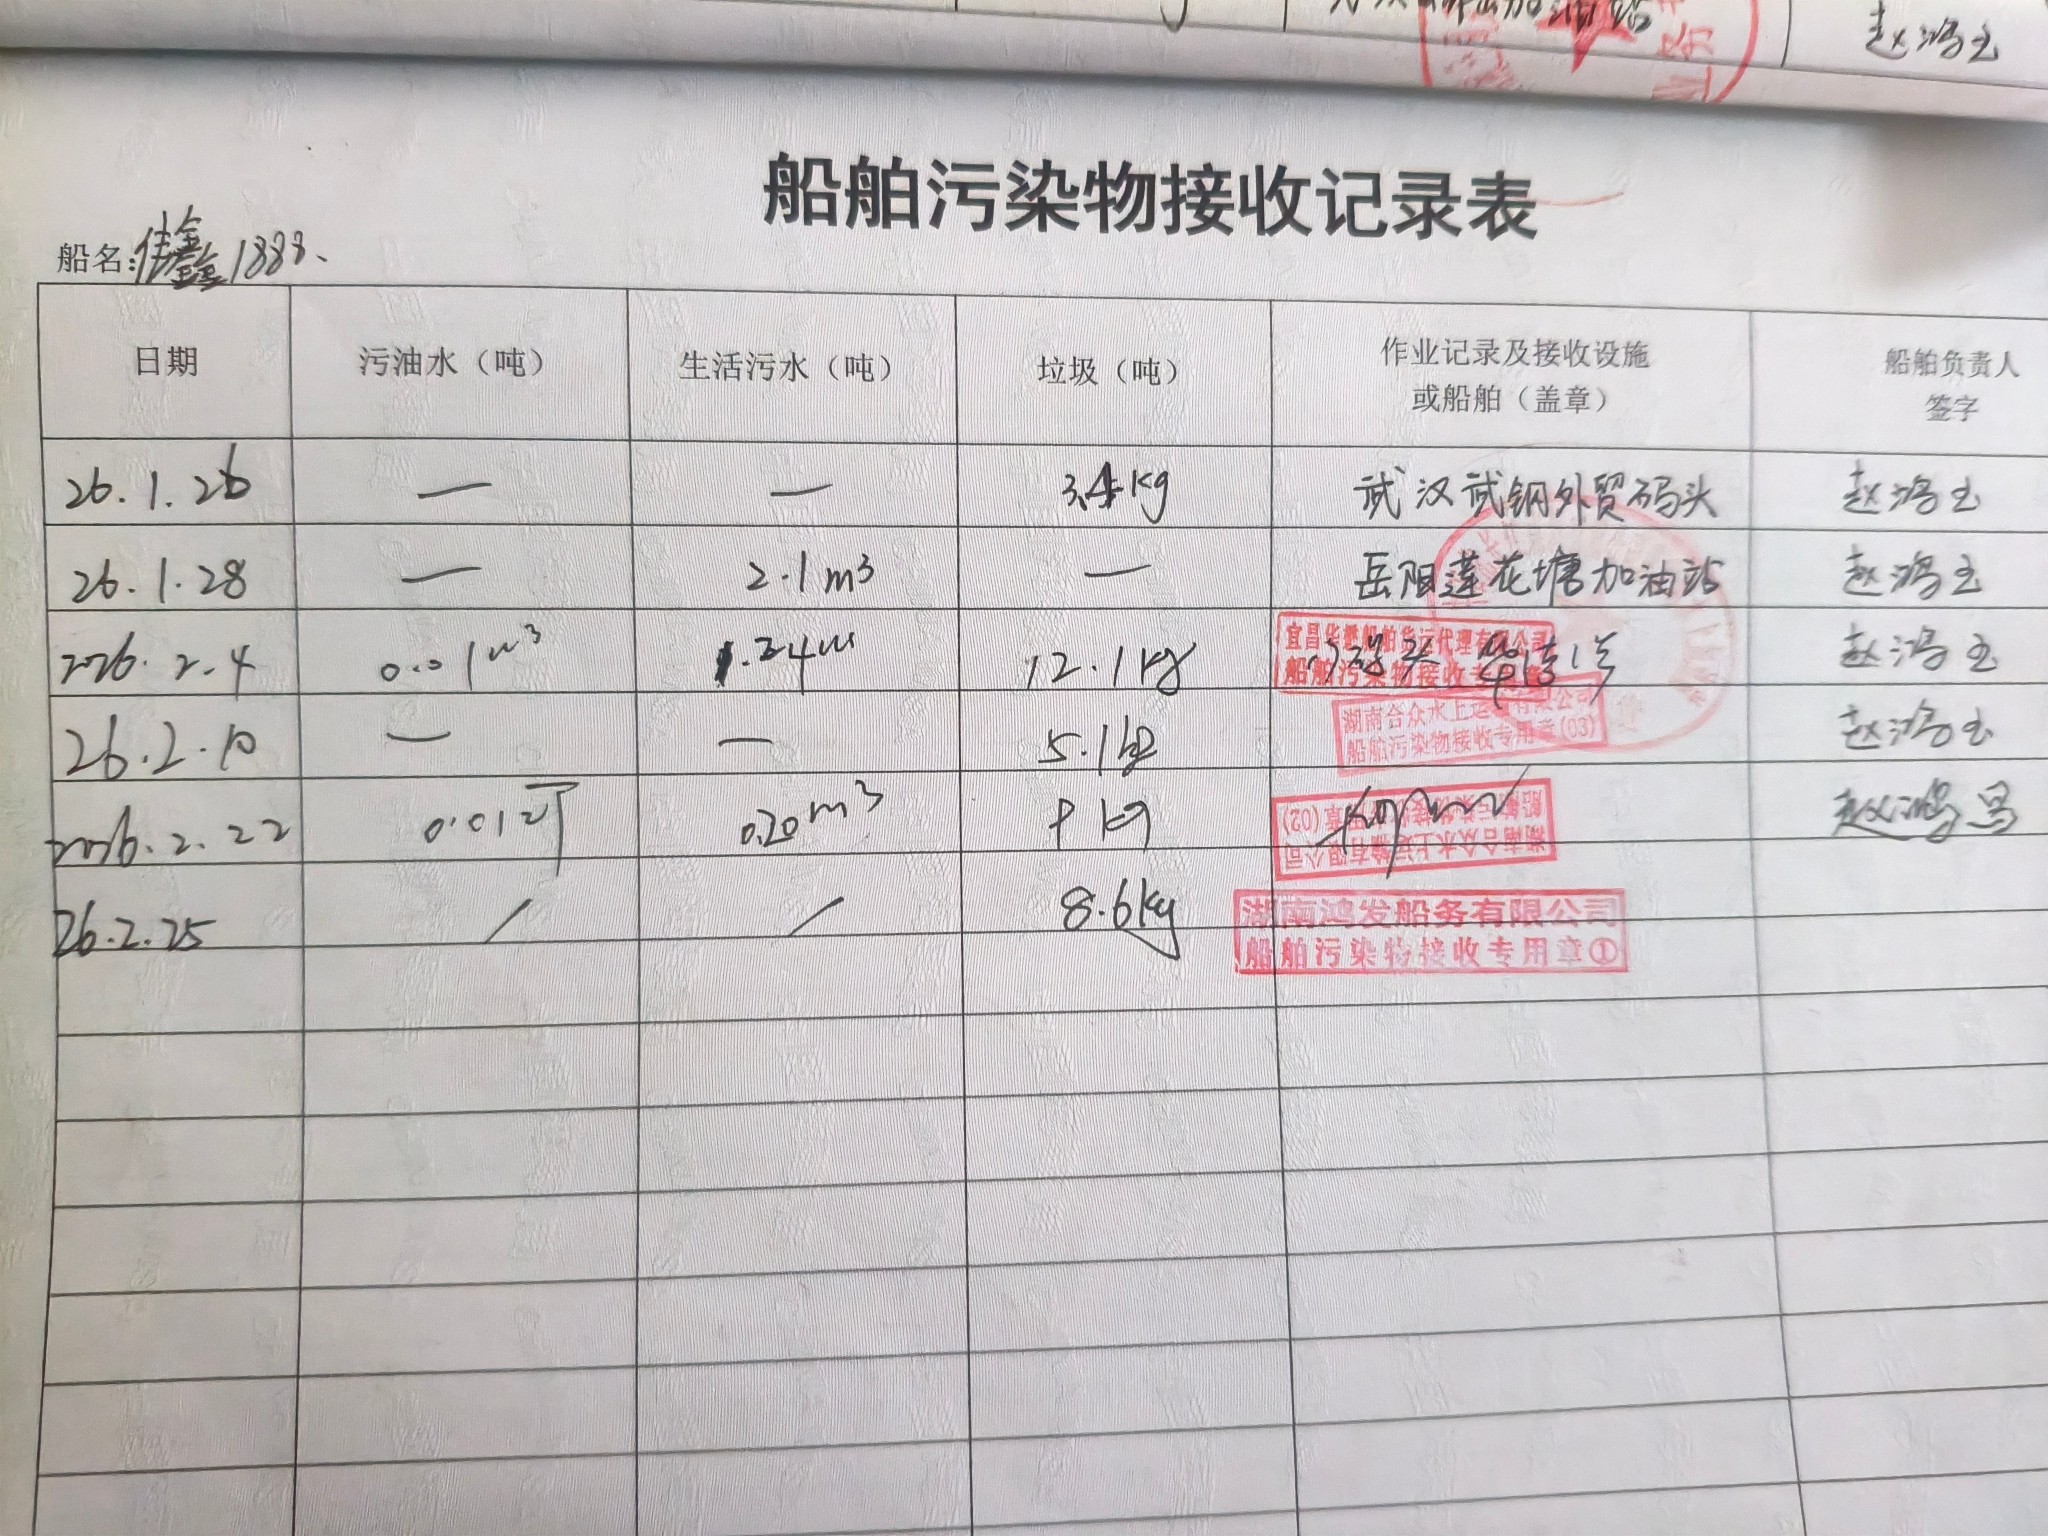 加油站
赵鸿玉
船舶污染物接收记录表
船名:佳鑫1888、
日期 污油水（吨） 生活污水（吨） 垃圾（吨） 作业记录及接收设施或船舶（盖章） 船舶负责人签字
26.1.26 — — 3.4kg 武汉武钢外贸码头 赵鸿玉
26.1.28 — 2.1m³ — 岳阳莲花塘加油站 赵鸿玉
2026.2.4 0.01m³ 1.24m 12.1kg 赵鸿玉
宜昌华懋船舶货运代理有限公司
船舶污染物接收专
26.2.10 — — 5.1kg 赵鸿玉
湖南合众水上运输有限公司
船舶污染物接收专用章(03)
2026.2.22 0.01 0.20m³ kg 赵鸿
湖南合众水上运输有限公司
船舶污染物接收专用章(02)
26.2.25 / / 8.6kg
湖南鸿发船务有限公司
船舶污染物接收专用章①